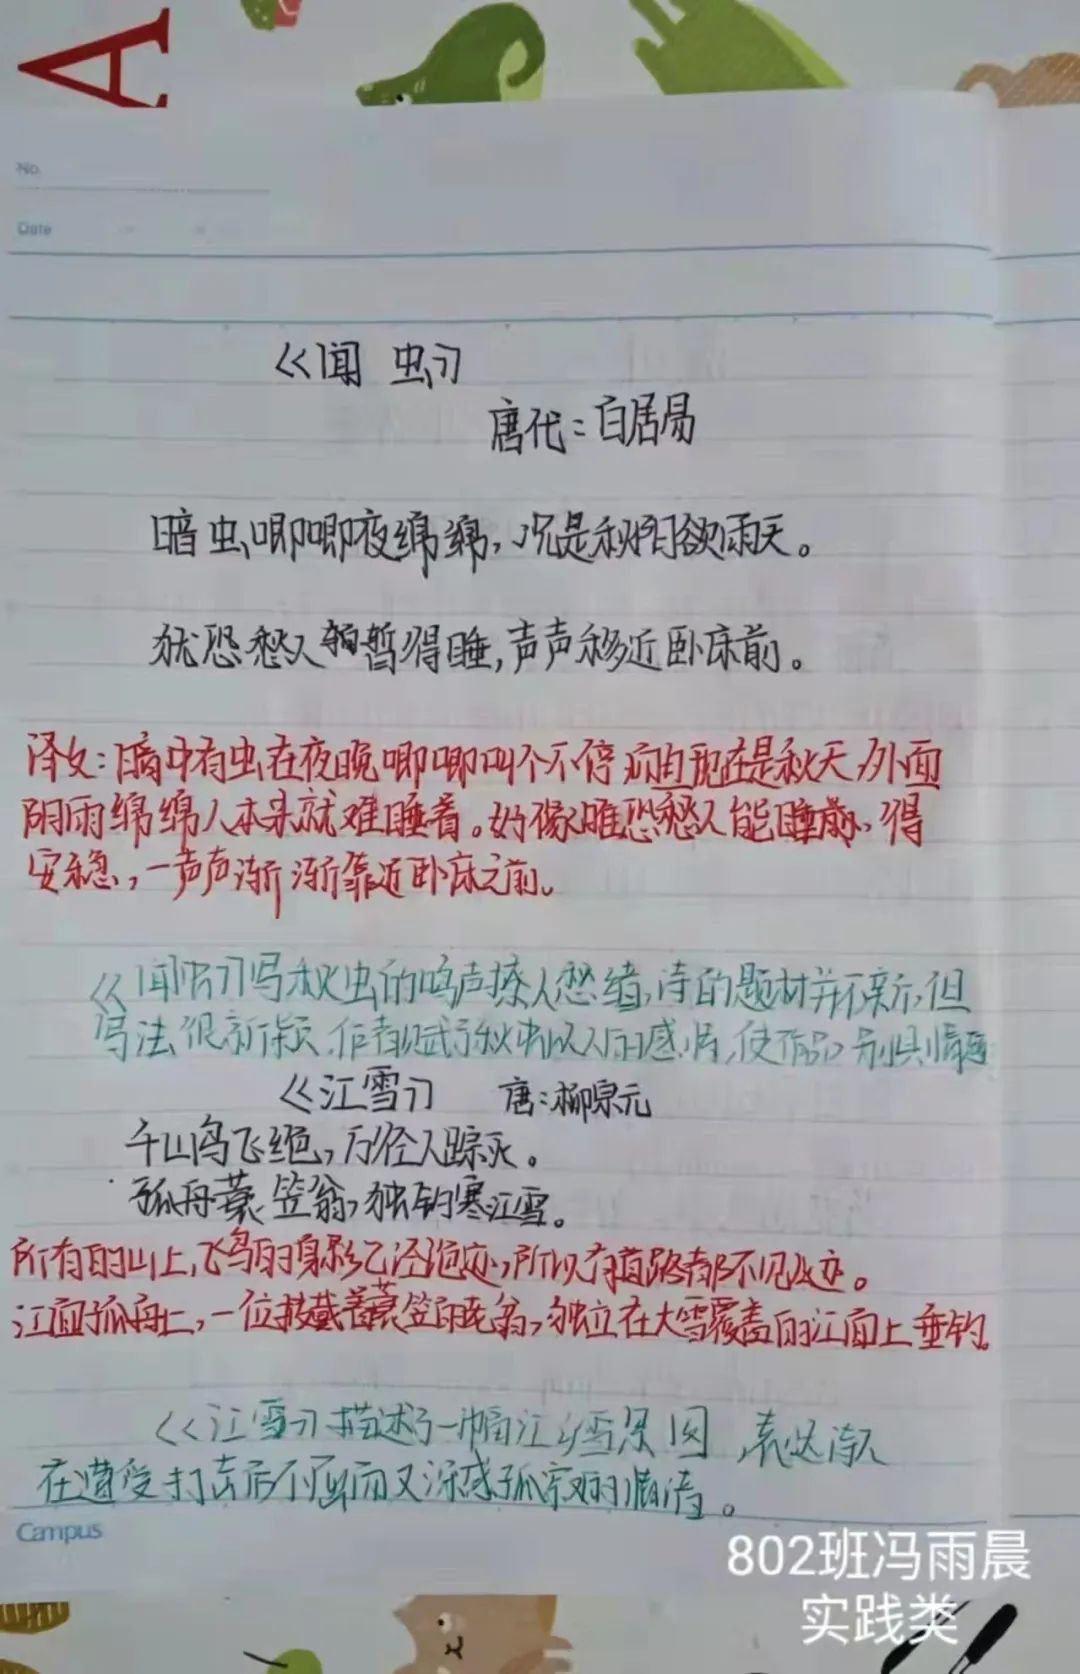 A
No.
Date
《闻虫》
唐代：白居易
暗虫唧唧夜绵绵，况是秋阴欲雨天。
犹恐愁人暂得睡，声声移近卧床前。
译文：暗中有虫在夜晚唧唧叫个不停而且现在是秋天，外面
阴雨绵绵人本来就难睡着。好像唯恐愁人能睡、得
安稳，一声声渐渐靠近卧床之前。
《闻虫》写秋虫的鸣声撩人愁绪，诗的题材并不新，但
写法很新颖，作者赋予秋虫以人的感情，使作品别具情趣
《江雪》 唐：柳宗元
千山鸟飞绝，万径人踪灭。
孤舟蓑笠翁，独钓寒江雪。
所有的山上，飞鸟的身影已经绝迹，所以有道路都不见人迹。
江面孤舟上，一位披戴着蓑笠的老翁，独立在大雪覆盖的江面上垂钓。
《江雪》描述了一幅江乡雪景图，表达诗人
在遭受打击后不屈而又深感孤寂的情绪。
Campus
802班冯雨晨
实践类